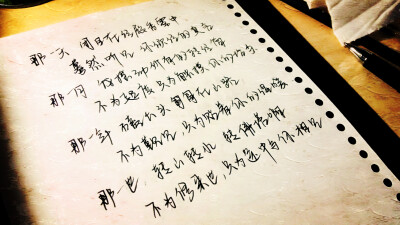 那一天 闭目在经殿香雾中
蓦然听见 你颂经的真言
那一月 我摇动所有的转经筒
不为超度 只为触摸你的指尖
那一年 磕长头匍匐在山路
不为觐见 只为贴着你的温暖
那一世 转山转水 转佛塔啊
不为修来世 只为途中与你相见